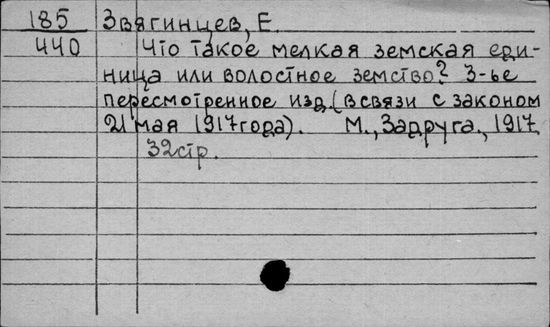 185 Звягинцев, Е.
440 Что такое мелкая земская еди-
ница или волостное земство? 3-ье
пересмотренное изд. (в связи с законом
21 мая 1917 года). М., Задруга, 1917.
32 стр.